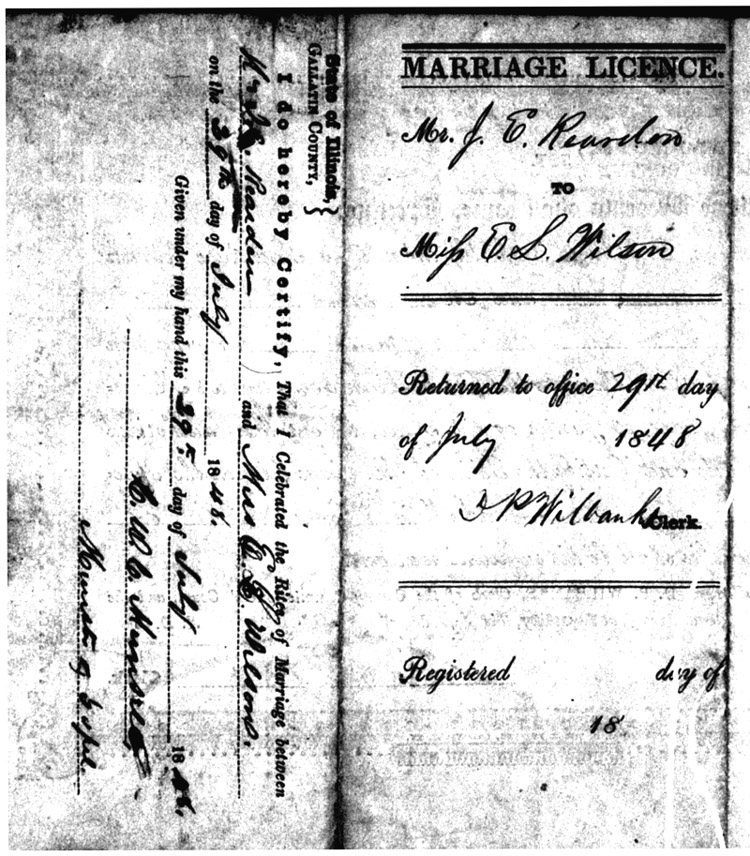 State of Illinois,
GALLATIN COUNTY,
I do hereby Certify, That I Celebrated the Rites of Marriage between
and Miss E. S. Wilson.
on the 29th day of July 1848.
Given under my hand this 29th day of July 1848.
MARRIAGE LICENCE.
Mr. J. E. Reardon
TO
Miss E. S. Wilson
Returned to office 29th day
of July 1848
Wilbanks Clerk.
Registered day of
18